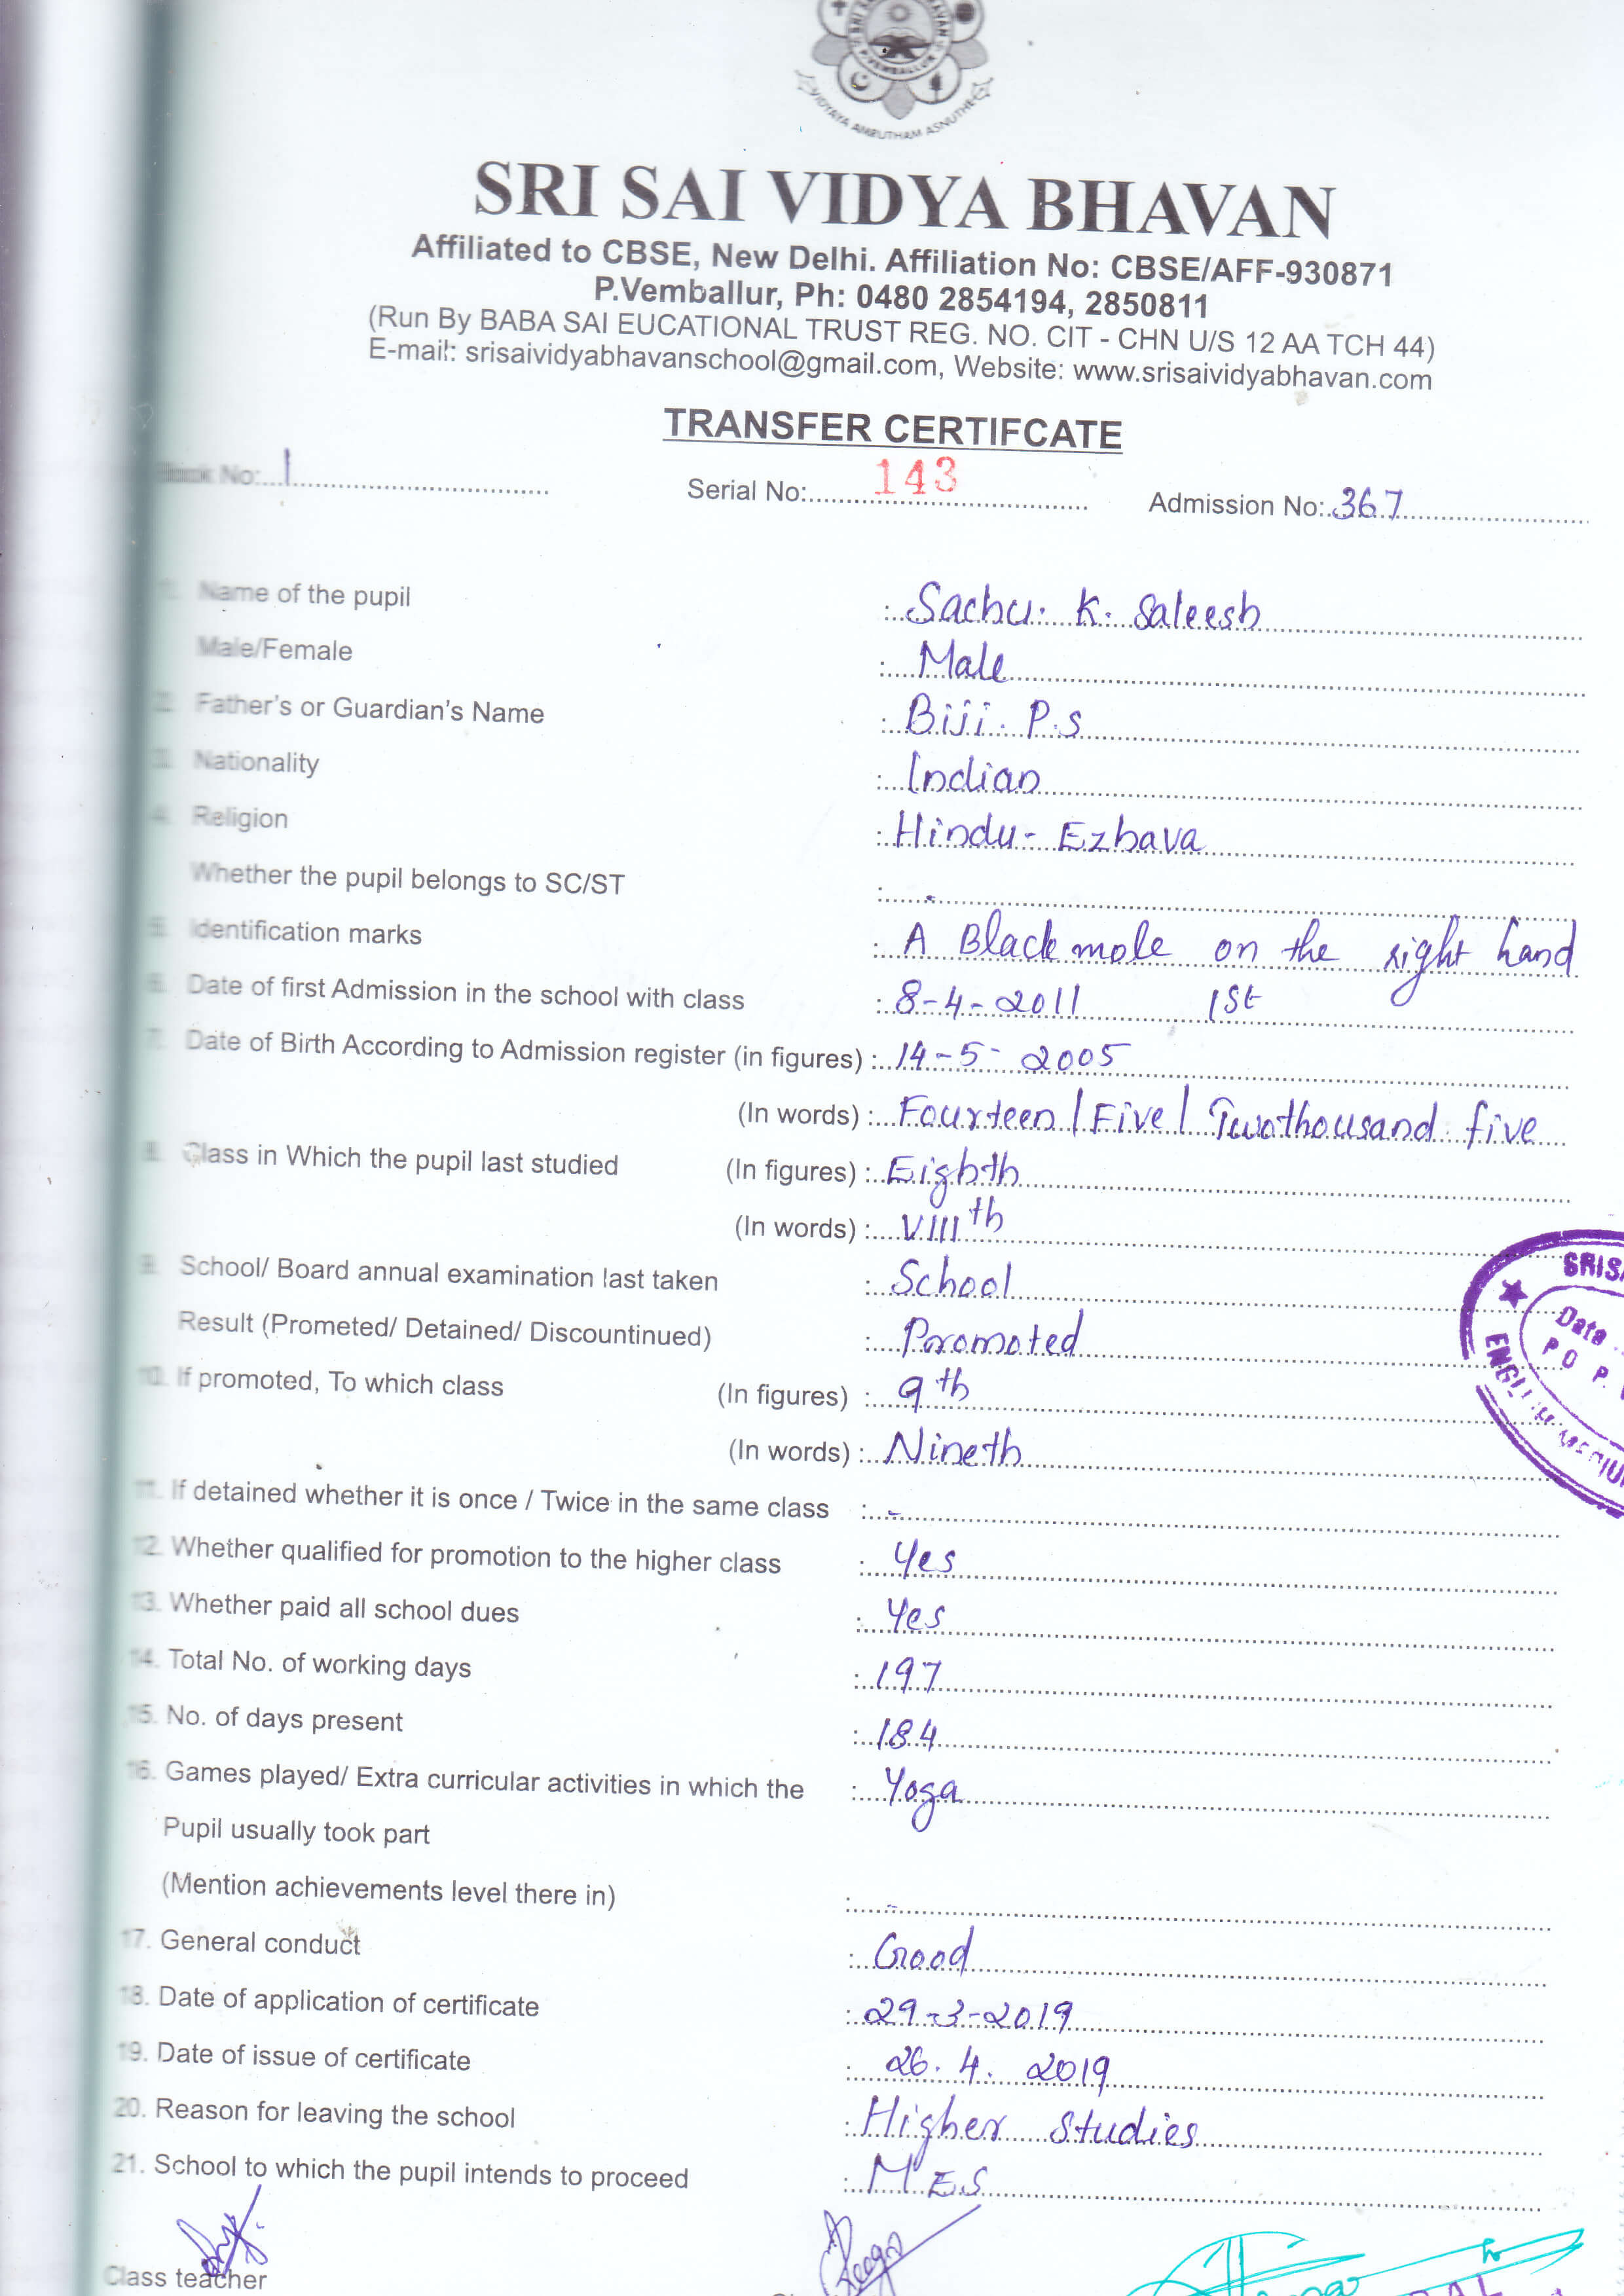 VIDYAYA AMRUTHAM ASNUTHE
SRI SAI VIDYA BHAVAN
Affiliated to CBSE, New Delhi. Affiliation No: CBSE/AFF-930871
P.Vemballur, Ph: 0480 2854194, 2850811
(Run By BABA SAI EUCATIONAL TRUST REG. NO. CIT - CHN U/S 12 AA TCH 44)
E-mail: srisaividyabhavanschool@gmail.com, Website: www.srisaividyabhavan.com
TRANSFER CERTIFCATE
Book No: 1 Serial No: 143 Admission No: 367
1. Name of the pupil : Sachu. K. Saleesh
Male/Female : Male
2. Father's or Guardian's Name : Biji. P.s
3. Nationality : Indian
4. Religion : Hindu - Ezhava
Whether the pupil belongs to SC/ST : -
5. Identification marks : A Black mole on the right hand
6. Date of first Admission in the school with class : 8-4-2011 1St
7. Date of Birth According to Admission register (in figures) : 14-5-2005
(In words) : Fourteen / Five / Twothousand five
8. Class in Which the pupil last studied (In figures) : Eighth
(In words) : VIIIth
9. School/ Board annual examination last taken : School
Result (Prometed/ Detained/ Discountinued) : Promoted
10. If promoted, To which class (In figures) : 9th
(In words) : Nineth
11. If detained whether it is once / Twice in the same class : -
12. Whether qualified for promotion to the higher class : Yes
13. Whether paid all school dues : Yes
14. Total No. of working days : 197
15. No. of days present : 184
16. Games played/ Extra curricular activities in which the : Yoga
Pupil usually took part
(Mention achievements level there in) : -
17. General conduct : Good
18. Date of application of certificate : 29-3-2019
19. Date of issue of certificate : 26. 4. 2019
20. Reason for leaving the school : Higher Studies
21. School to which the pupil intends to proceed : M E.S
Class teacher